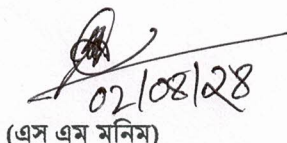 02/08/28
(এস এম মনিম)